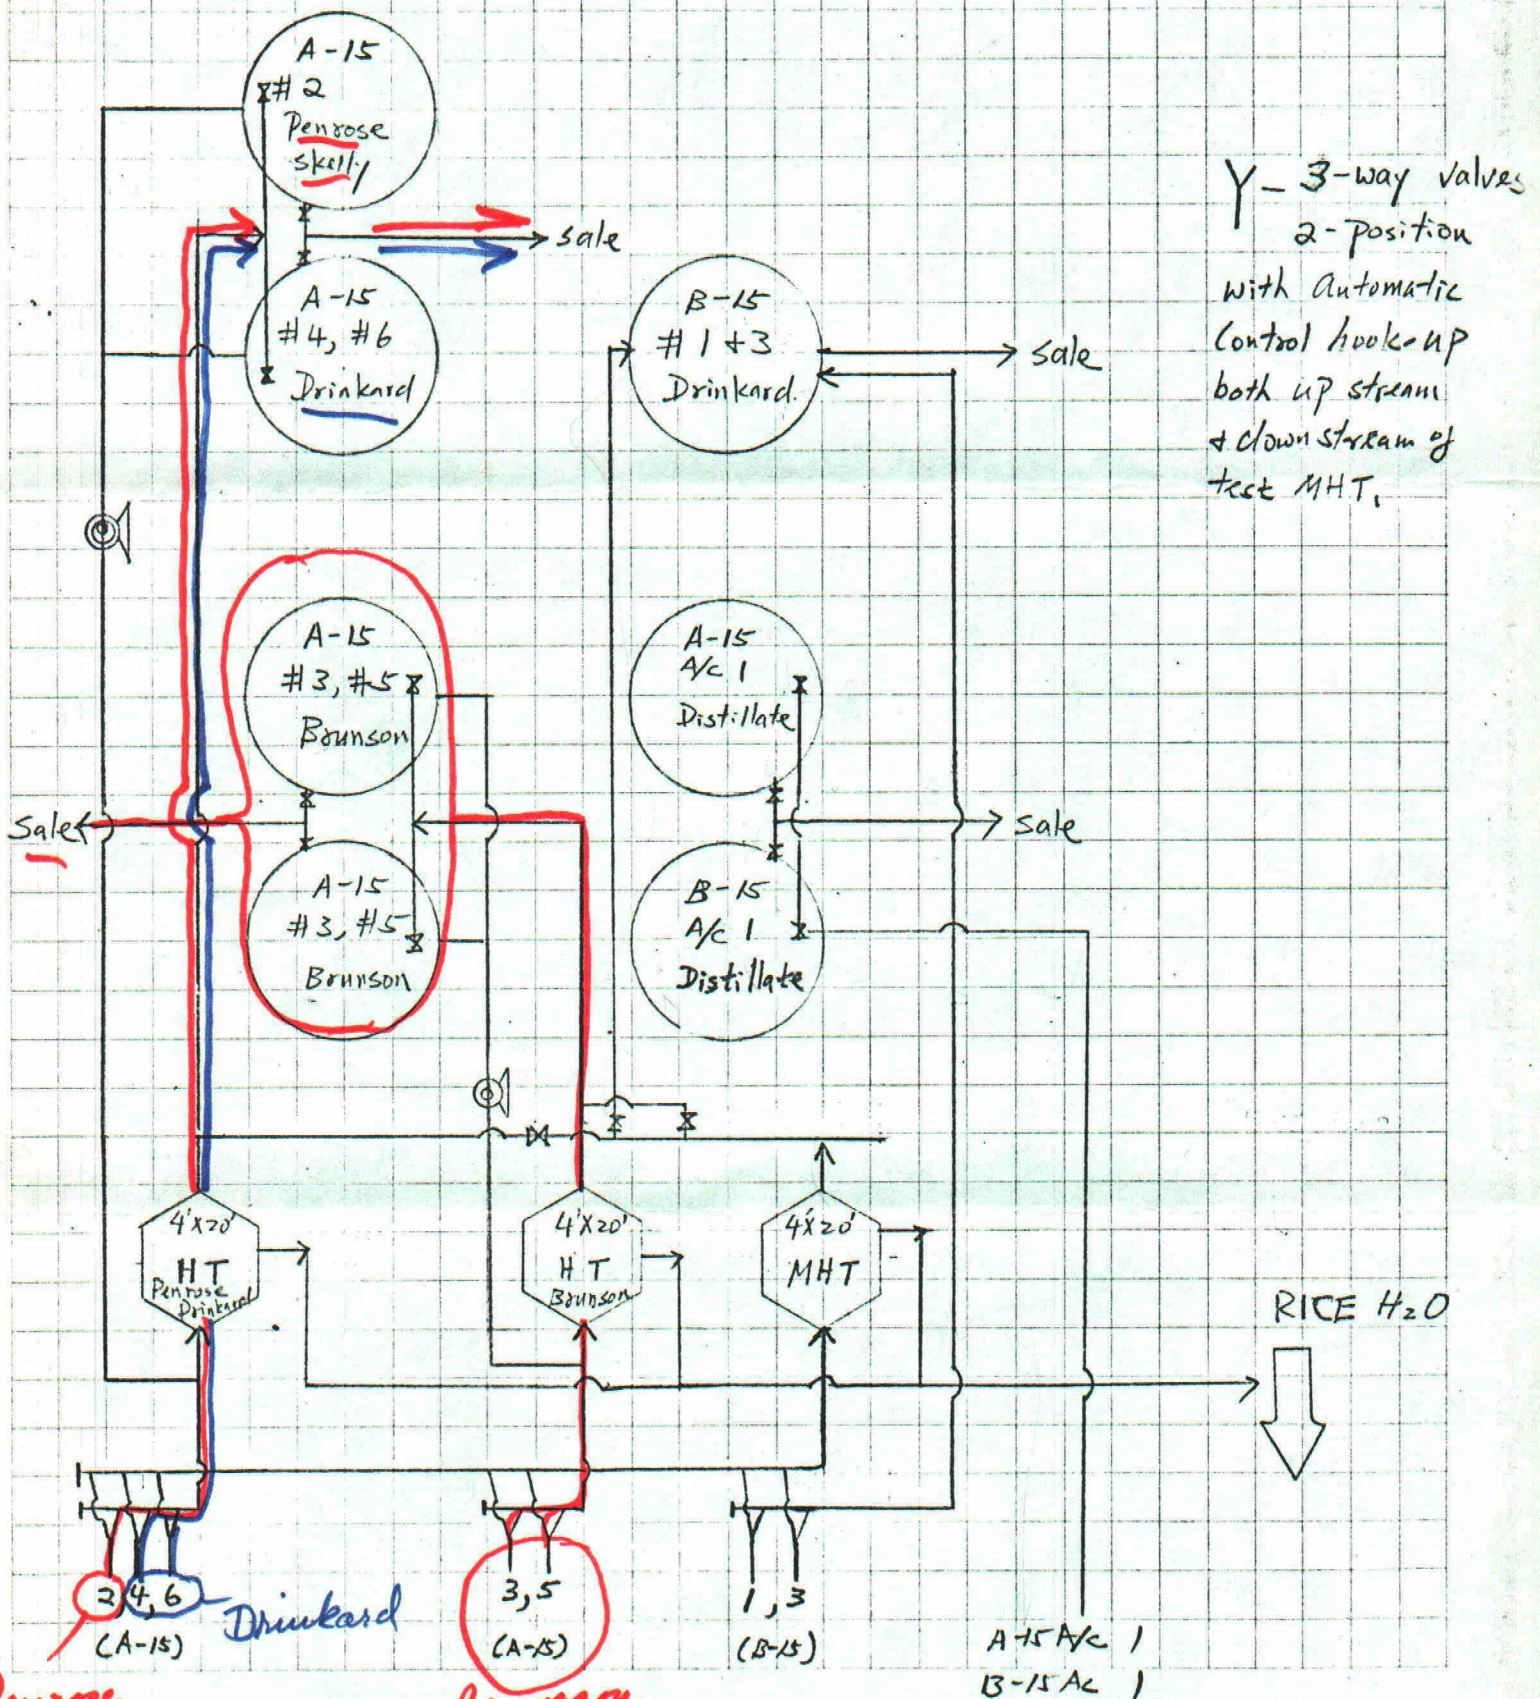 A-15
#2
Penrose
skelly
sale
A-15
#4, #6
Drinkard
B-15
#1+3
Drinkard
sale
Y- 3-way valves
2-position
with Automatic
Control hook-up
both up stream
+ downstream of
test MHT.
A-15
#3, #5
Brunson
A-15
A/c 1
Distillate
Sale
sale
A-15
#3, #5
Brunson
B-15
A/c 1
Distillate
4'X20'
HT
Penrose
Drinkard
4'X20'
HT
Brunson
4'X20'
MHT
RICE H2O
2 4, 6
Drinkard
(A-15)
3, 5
(A-15)
1, 3
(B-15)
A-15 A/c 1
B-15 Ac 1